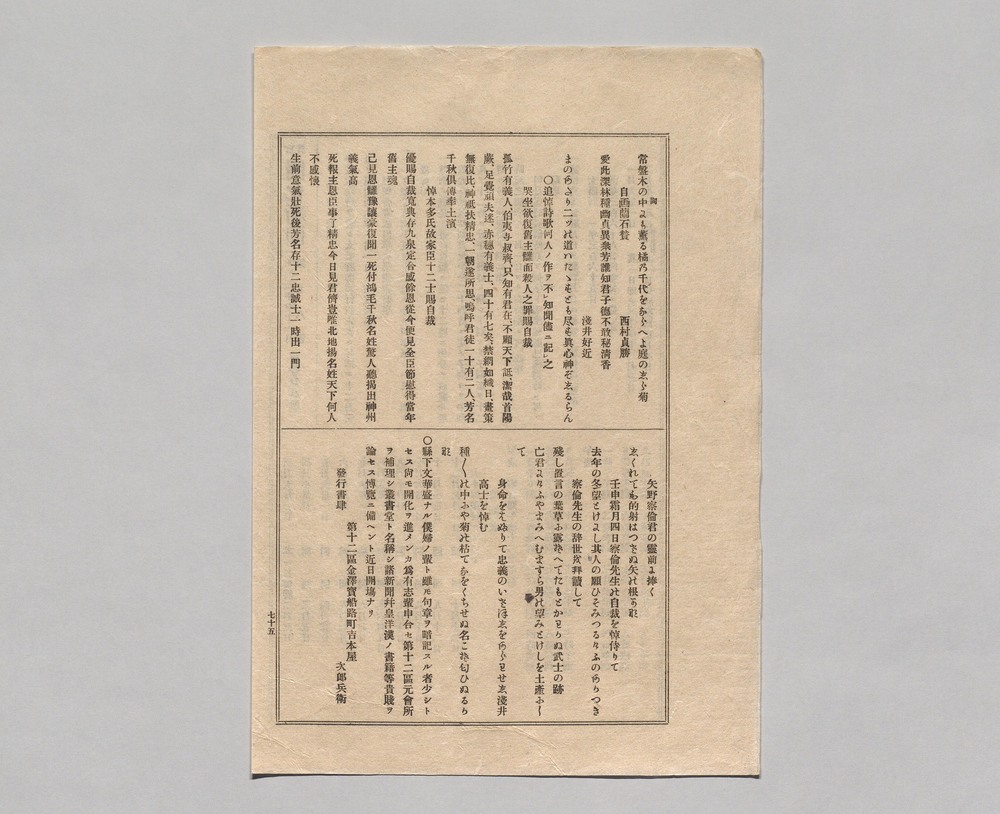 常盤木の中よも薫る橘乃千代をかそへよ庭のゑら菊
自画蘭石贊 西村貞勝
愛此深林種幽貞異衆芳誰知君子德不敢秘清香
淺井好近
まのあさり二ツれ道いたゝもとも尽も眞心神ぞゑるらん
〇追悼詩歌何人ノ作ヲ不」知聞儘ニ記」之
哭坐欲復舊主讎而殺人之罪賜自裁
孤竹有義人伯夷与叔齊、只知有君在、不顧天下詆、潔哉首陽
蕨、足覺頑夫迷、赤穗有義士、四十有七矣、禁網如織日、畫策
無復比、神祇扶精忠、一朝遂所思、嗚呼君徒一十有二人、芳名
千秋俱傳率土濱
悼本多氏故家臣十二士賜自裁
優賜自裁寬典存九泉定合感餘恩從今便見全臣節慰得當年
舊主魂
己見恩讎豫讓豪復聞一死付鴻毛千秋名姓驚人聽揭出神州
義氣高
死報主恩臣事了精忠今日見君儕豈唯北地揚名姓天下何人
不感懷
生前意氣壯死後芳名存十二忠誠士一時出一門
矢野察倫君の靈前よ捧く
ゑくれても的射はつさぬ矢れ根
壬申霜月四日察倫先生れ自裁を悼侍りて
去年の冬望とけよし其人の願ひそみつるけふのあらつき
察倫先生の辞世成拜讀して
殘し置言の葉草ふ露そへてたもとかはらぬ武士の跡
亡君よりふやまみへむますら男れ望みとけしを土產ふし
て
身命をそぬりて忠義のいさほゑをあらはせゑ淺井
高士を悼む
種〳〵れ中ふや菊れ枯てかをくちせぬ名こそ匂ひぬるら
〇縣下文華盛ナル僕婦ノ輩ト雖モ句章ヲ暗記スル者少シト
セス尚モ開化ヲ進メンカ爲有志輩申合セ第十二區元會所
ヲ補理シ叢書堂ト名稱シ諸新聞幷皇洋漢ノ書籍等貴賤ヲ
論セス博覽ニ備ヘント近日開塲ナリ
發行書肆
第十二區金澤寶船路町吉本屋 次郎兵衛
七十五